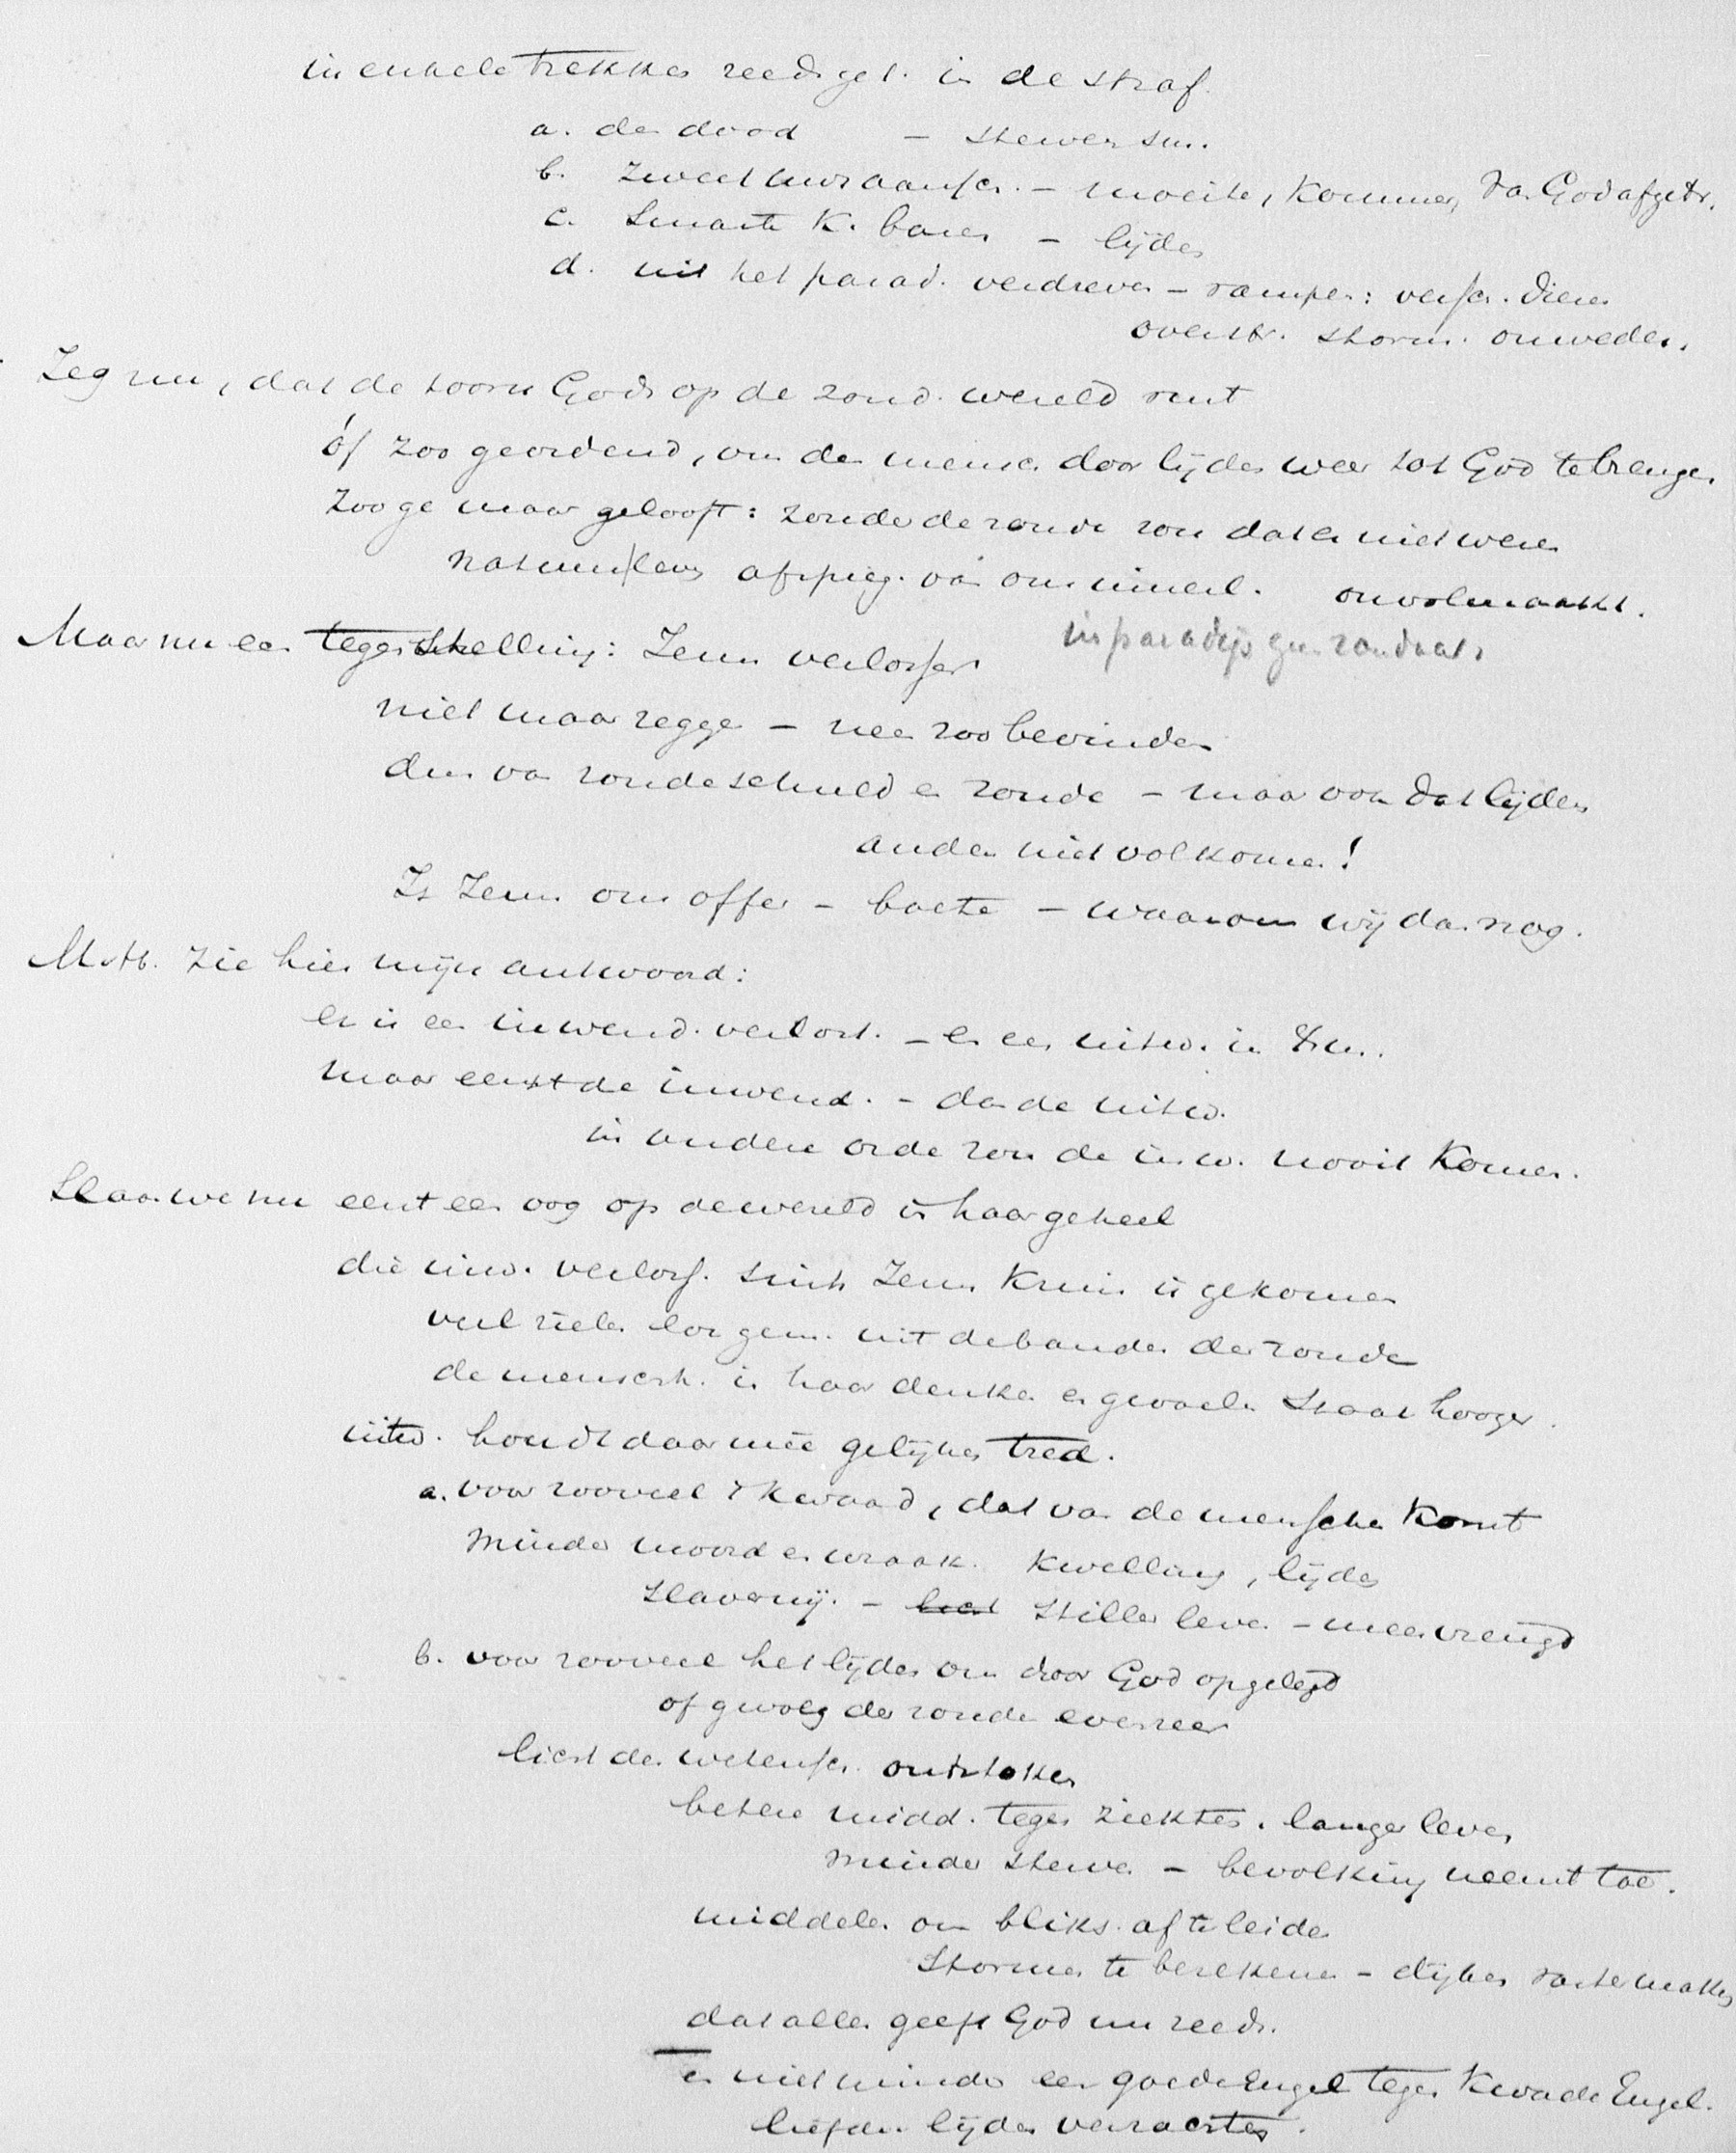 in enkele trekken reeds gel. in de straf.
a. den dood – sterven sm.
b. zweet uws aansch. – moeite, kommer, van God afgetr.
c. Smarte K. baren – lijden
d. uit het parad. verdreven – rampen: versch. dieren
overstr. storm. onweder.
Zeg nu, dat de toorn Gods op de zond. wereld rust
óf zoo geordend, om den mensch door lijden weer tot God te brengen
zoo ge maar gelooft: zonder de zonde zou dat er niet wezen
natuurleven afspieg. van ons innerl. onvolmaakt.
Maar nu een tegenstelling: Jezus verlosser
in paradijs geen zondaars
niet maar zeggen – nee zoo bevinden
dus van zondeschuld en zonde – maar ook dat lijden
anders niet volkomen!
Is Jezus ons offer – boete – waarom wij dan nog.
M. H. zie hier mijn antwoord:
er is een inwend. verlost. – en een uitw. in
maar eerst de inwend. – dan de uitw.
in andere orde zou de inw. nooit komen.
Slaan we nu eerst een oog op de wereld in haar geheel
die inw. verloss. sinds Jezus Kruis is gekomen
veel zielen losgem. uit de banden der zonde
de mensch. in haar denken en gevoelen staat hooger.
uitw. houdt daarmêe gelijken tred.
a. voor zooveel 't kwaad, dat van de menschen komt
minder moord en wraak. kwelling, lijden
slavernij. – stiller leven – meer vreugd
b. voor zooveel het lijden ons door God opgelegd
of gevolg der zonde evenzeer
licht der wetensch. ontstoken
betere midd. tegen ziektes. langer leven
minder sterven – bevolking neemt toe.
middelen om bliks. af te leiden
Stormen te berekenen – dijken vaster maken
dat alles geeft God nu reeds.
en niet minder een goede Engel tegen Kwade Engel.
liefde lijden verzachten.